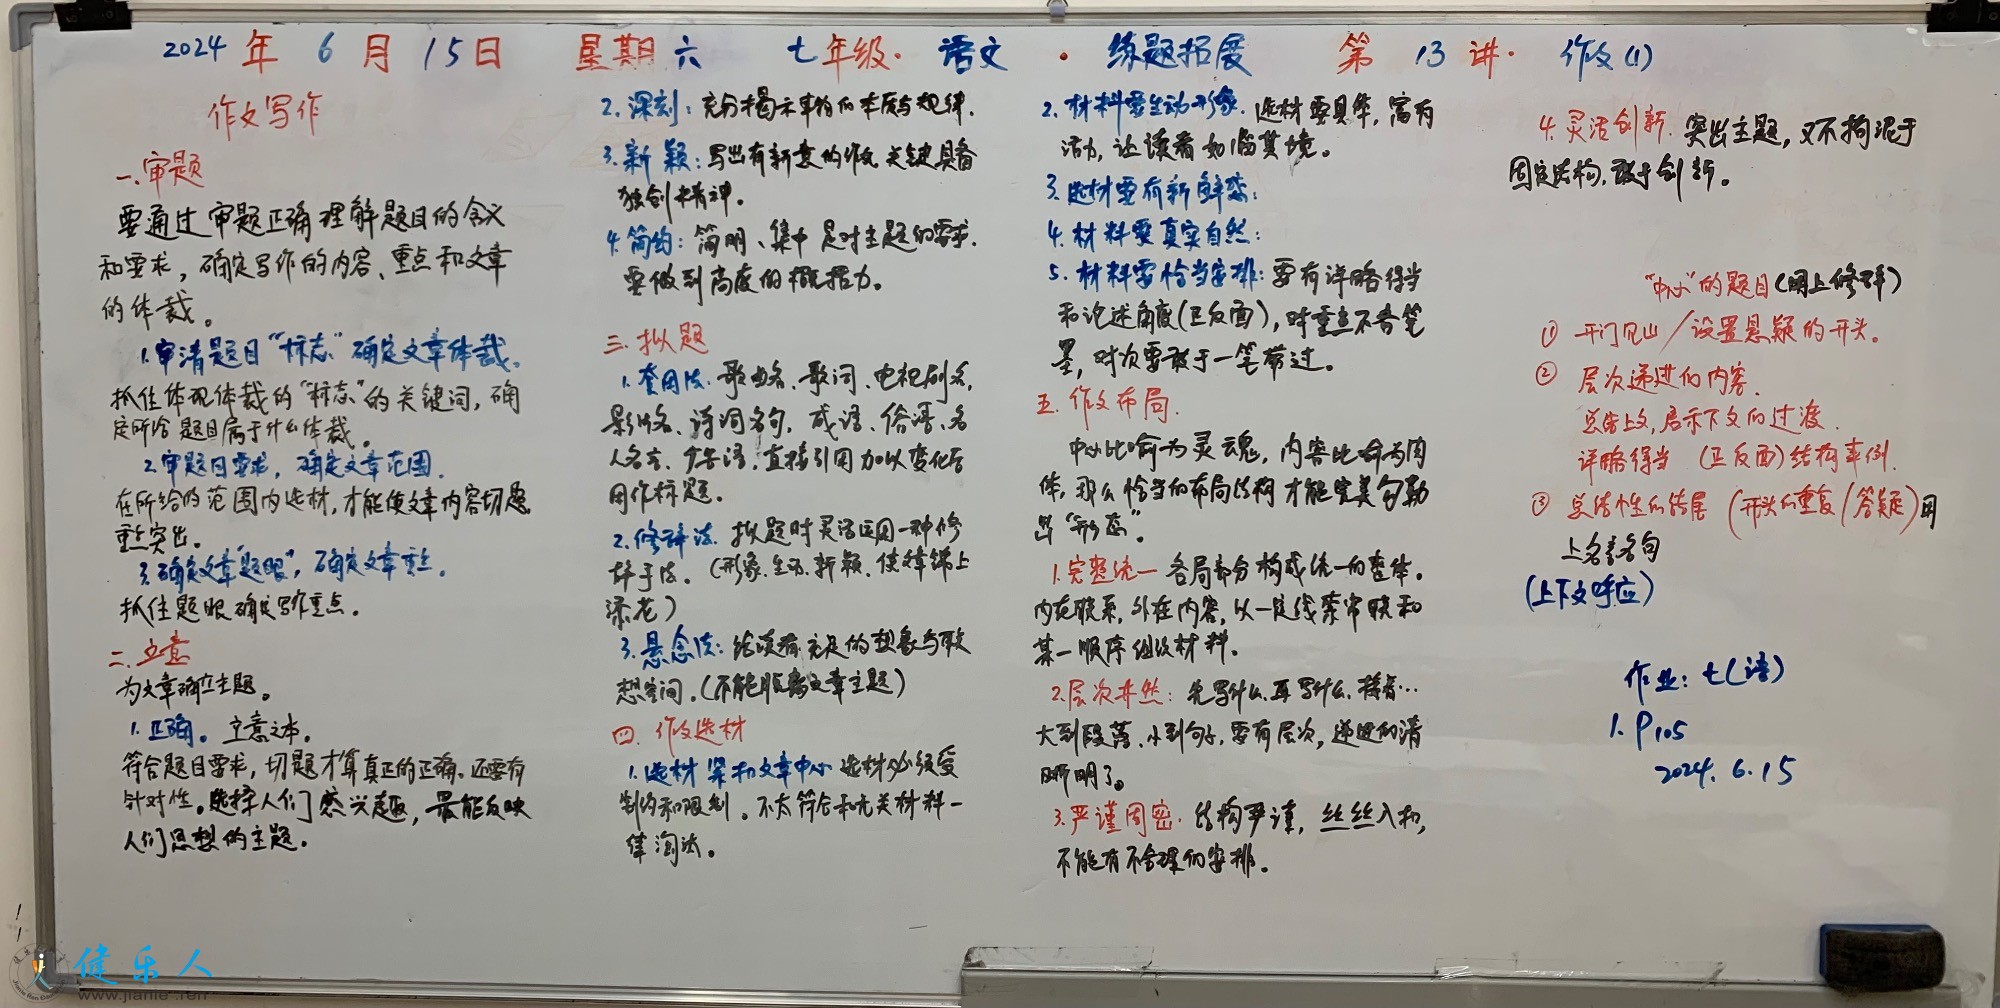 2024 年 6 月 15日 星期六 七年级· 语文 · 练题拓展 第 13 讲· 作文(1)
作文写作
一.审题
要通过审题正确理解题目的含义
和要求，确定写作的内容、重点和文章
的体裁。
1.审清题目“标志”确定文章体裁。
抓住体现体裁的“标志”的关键词，确
定所给题目属于什么体裁。
2.审题目要求，确定文章范围.
在所给的范围内选材，才能使文章内容切题
重点突出。
3.确定文章“题眼”，确定文章重点.
抓住题眼确定写作重点。
二.立意
为文章确立主题。
1.正确。立意之本。
符合题目要求，切题才算真正的正确。还要有
针对性。选择人们感兴趣，最能反映
人们思想的主题.
2.深刻：充分揭示事物的本质与规律.
3.新颖：写出有新意的作文关键具备
独创精神.
4.简约：简明、集中是对主题的要求.
要做到高度的概括力。
三.拟题
1.套用法.歌曲名、歌词、电视剧名,
影片名、诗词名句，成语、俗语、名
人名言、广告语.直接引用加以变化后
用作标题。
2.修辞法.拟题时灵活运用一种修
辞手法。（形象.生动.新颖.使文章锦上
添花）
3.悬念法：给读者充足的想象与联
想空间.（不能脱离文章主题）
四.作文选材
1.选材紧扣文章中心 选材必须受
制约和限制。不太符合和无关材料一
律淘汰。
2.材料要生动形象.选材要具体，富有
活力，让读者如临其境。
3.选材要有新鲜感：
4.材料要真实自然：
5.材料要恰当安排：要有详略得当
和论述角度(正反面)，对重点不吝笔
墨，对次要敢于一笔带过。
五.作文布局.
中心比喻为灵魂，内容比喻为肉
体，那么恰当的布局结构才能完美勾勒
出“形态”。
1.完整统一 各局部分构成统一的整体。
内在联系，外在内容，以一定线索串联和
某一顺序组织材料。
2.层次井然：先写什么.再写什么.接着…
大到段落、小到句子，要有层次，递进的清
晰明了。
3.严谨周密.结构严谨，丝丝入扣,
不能有不合理的安排。
4.灵活创新.突出主题，又不拘泥于
固定结构，敢于创新。
“中心”的题目(用上修辞)
① 开门见山／设置悬疑的开头。
② 层次递进的内容.
总结上文,启示下文的过渡.
详略得当 (正反面)结构事例.
③ 总结性的结尾 (开头的重复/答疑)用
上名言名句
(上下文呼应)
作业：七(语)
1. P105
2024.6.15
健乐人
www.jianle.ren